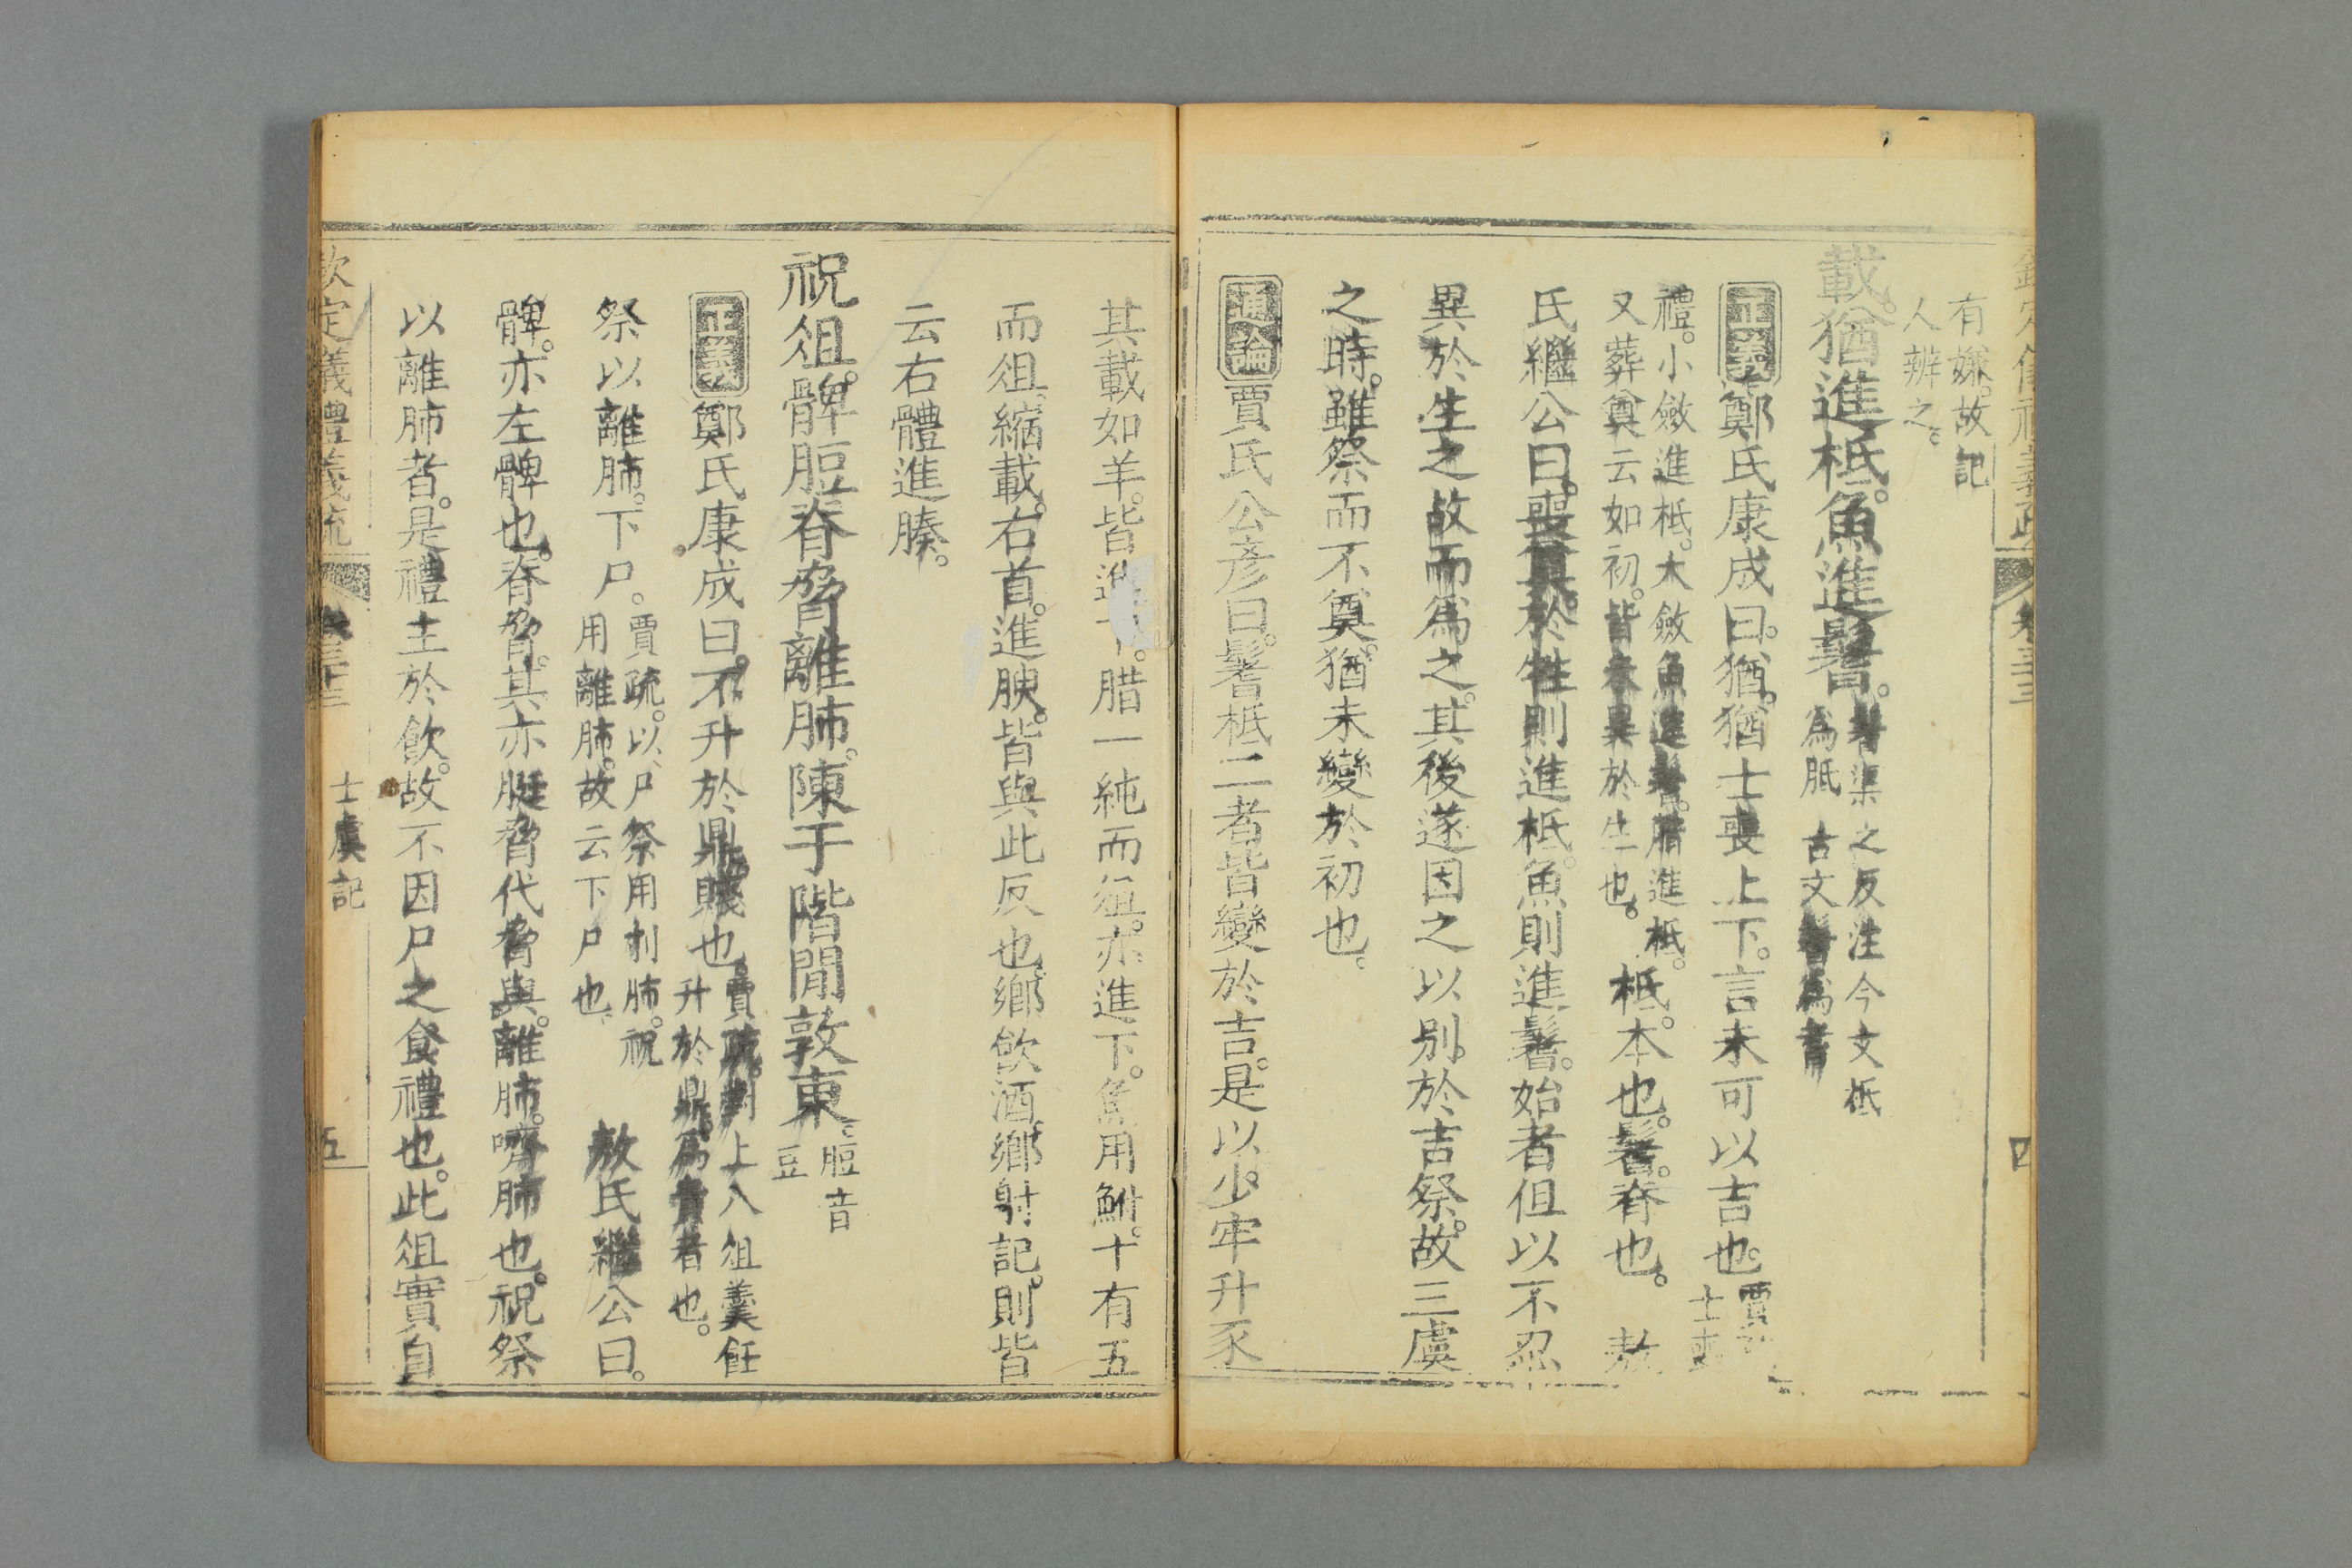 有嫌。故記
人辨之。
載。猶進柢。魚進鬐。
鬐渠之反注今文柢
為胝 古文鬐為耆
正義鄭氏康成曰。猶。猶士喪上下。言未可以吉也。
賈
士喪
禮。小斂進柢。大斂魚進鬐。腊進柢。
又葬奠云如初。皆未異於生也。
柢。本也。鬐。脊也。 敖
氏繼公曰。喪奠。於牲則進柢。魚則進鬐。始者但以不忍
異於生之故而為之。其後遂因之以別於吉祭。故三虞
之時。雖祭而不奠。猶未變於初也。
通論賈氏公彥曰。鬐柢二者皆變於吉。是以少牢升豕
其載如羊。皆進下。腊一純而俎。亦進下。魚用鮒。十有五
而俎。縮載。右首。進腴。皆與此反也。鄉飲酒。鄉射記。則皆
云右體進腠。
祝俎。髀脰脊脅離肺。陳于階閒敦東。
脰音
豆
正義鄭氏康成曰。不升於鼎。賤也。
賈疏。對上入俎羹飪
升於鼎。為貴者也。
祭以離肺。下尸。
賈疏。以尸祭用刌肺。祝
用離肺。故云下尸也
敖氏繼公曰。
髀。亦左髀也。脊脅。其亦脡脊代脅與。離肺。嚌肺也。祝祭
以離肺者。是禮主於飲。故不因尸之食禮也。此俎實自
欽定儀禮義疏 卷三十三 士虞記 五